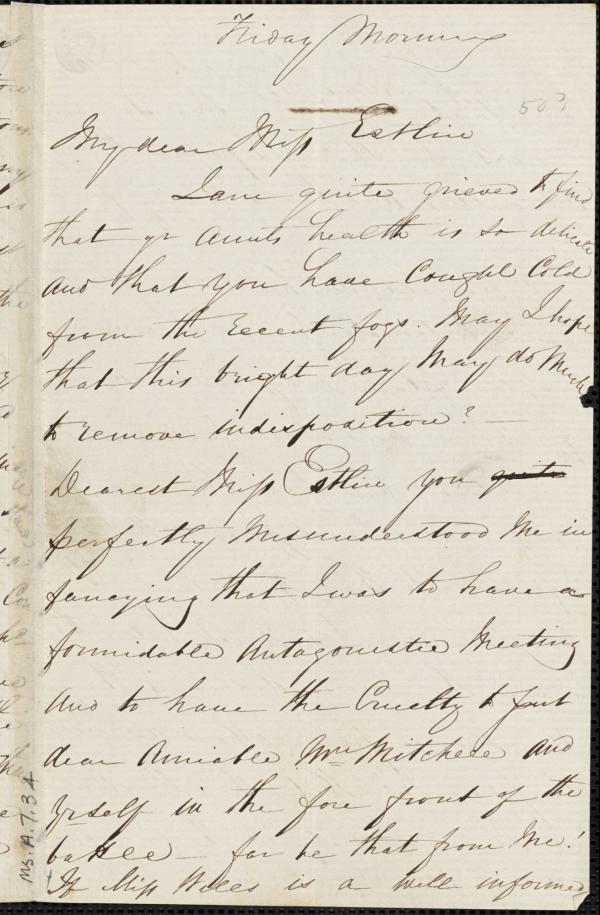 Friday Morning
50?
My dear Miss Estlin
I am quite grieved to find
that yr aunts health is so delicate
and that you have Caught Cold
from the recent fogs. May I hope
that this bright day May do Much
to remove indisposition? —
Dearest Miss Estlin you quite
perfectly Misunderstood Me in
fancying that I was to have a
formidable Antagonistic Meeting
and to have the Cruelty to put
dear Amiable Mrs Mitchell and
yrself in the fore front of the
battle — far be that from Me!
If Miss Wells is a well informed
Ms. A. 7. 3 A